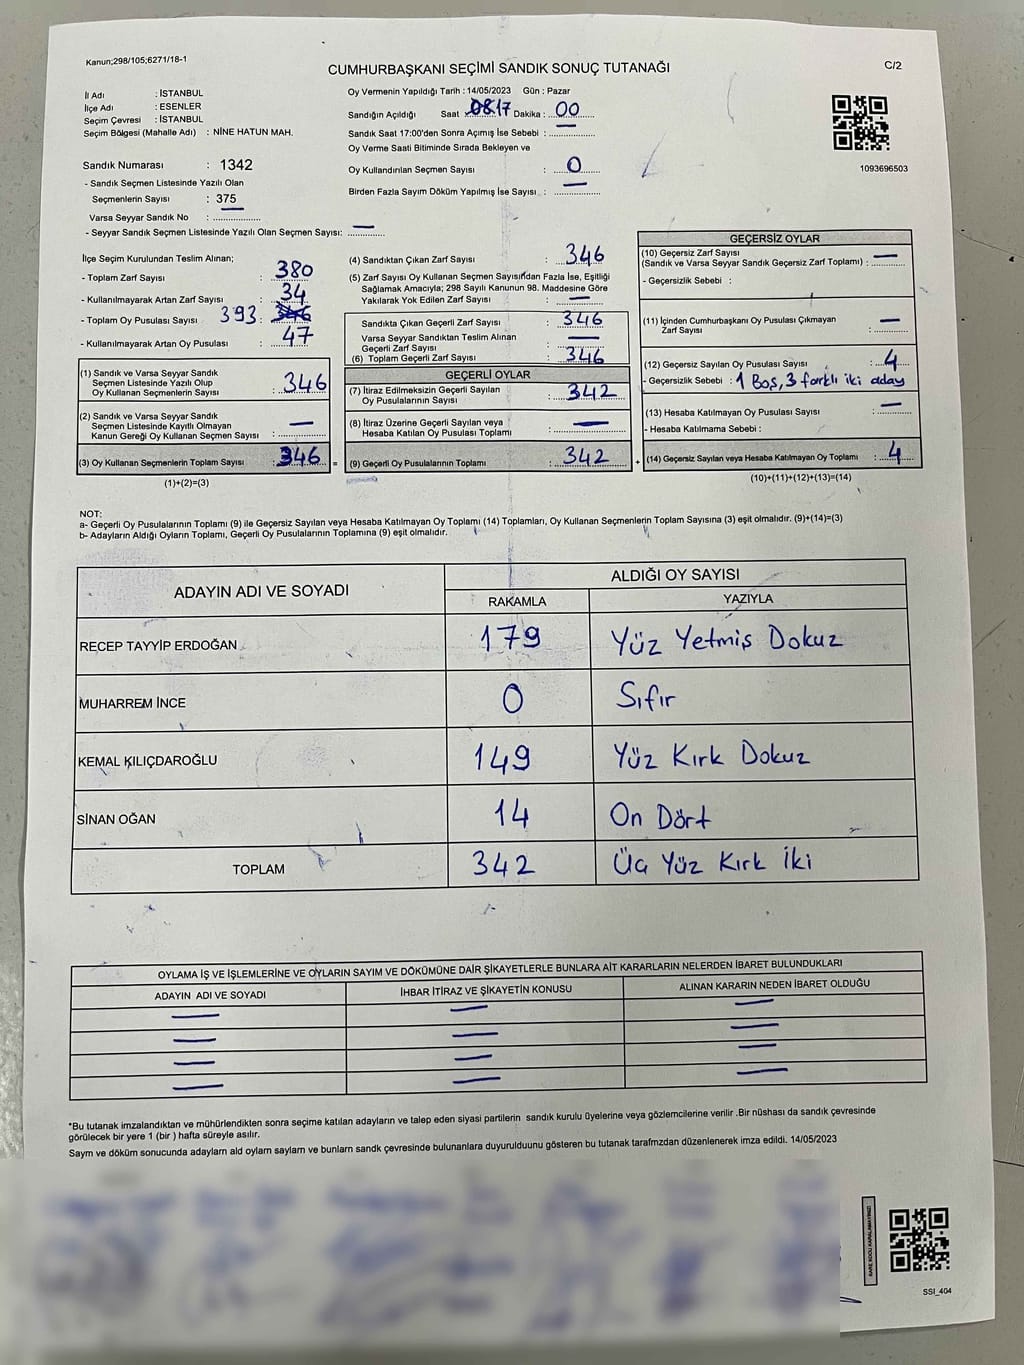 Kanun;298/105;6271/18-1
CUMHURBAŞKANI SEÇİMİ SANDIK SONUÇ TUTANAĞI
C/2
İl Adı : İSTANBUL
İlçe Adı : ESENLER
Seçim Çevresi : İSTANBUL
Seçim Bölgesi (Mahalle Adı) : NİNE HATUN MAH.
Sandık Numarası : 1342
- Sandık Seçmen Listesinde Yazılı Olan
Seçmenlerin Sayısı : 375
Varsa Seyyar Sandık No : ...............
- Seyyar Sandık Seçmen Listesinde Yazılı Olan Seçmen Sayısı: —
Oy Vermenin Yapıldığı Tarih : 14/05/2023 Gün : Pazar
Sandığın Açıldığı Saat 17 Dakika : 00
Sandık Saat 17:00'den Sonra Açımış İse Sebebi : —
Oy Verme Saati Bitiminde Sırada Bekleyen ve
Oy Kullandırılan Seçmen Sayısı : 0
Birden Fazla Sayım Döküm Yapılmış İse Sayısı : —
1093696503
İlçe Seçim Kurulundan Teslim Alınan;
- Toplam Zarf Sayısı : 380
- Kullanılmayarak Artan Zarf Sayısı : 34
- Toplam Oy Pusulası Sayısı 393 : 346
- Kullanılmayarak Artan Oy Pusulası : 47
(1) Sandık ve Varsa Seyyar Sandık
Seçmen Listesinde Yazılı Olup
Oy Kullanan Seçmenlerin Sayısı : 346
(2) Sandık ve Varsa Seyyar Sandık
Seçmen Listesinde Kayıtlı Olmayan
Kanun Gereği Oy Kullanan Seçmen Sayısı : —
(3) Oy Kullanan Seçmenlerin Toplam Sayısı 346
(1)+(2)=(3)
(4) Sandıktan Çıkan Zarf Sayısı : 346
(5) Zarf Sayısı Oy Kullanan Seçmen Sayısından Fazla İse, Eşitliği
Sağlamak Amacıyla; 298 Sayılı Kanunun 98. Maddesine Göre
Yakılarak Yok Edilen Zarf Sayısı : —
Sandıkta Çıkan Geçerli Zarf Sayısı : 346
Varsa Seyyar Sandıktan Teslim Alınan
Geçerli Zarf Sayısı : —
(6) Toplam Geçerli Zarf Sayısı : 346
GEÇERLİ OYLAR
(7) İtiraz Edilmeksizin Geçerli Sayılan
Oy Pusulalarının Sayısı : 342
(8) İtiraz Üzerine Geçerli Sayılan veya
Hesaba Katılan Oy Pusulası Toplamı : —
= (9) Geçerli Oy Pusulalarının Toplamı : 342
GEÇERSİZ OYLAR
(10) Geçersiz Zarf Sayısı
(Sandık ve Varsa Seyyar Sandık Geçersiz Zarf Toplamı) : —
- Geçersizlik Sebebi :
(11) İçinden Cumhurbaşkanı Oy Pusulası Çıkmayan
Zarf Sayısı : —
(12) Geçersiz Sayılan Oy Pusulası Sayısı : 4
- Geçersizlik Sebebi : 1 Boş, 3 farklı iki aday
(13) Hesaba Katılmayan Oy Pusulası Sayısı : —
- Hesaba Katılmama Sebebi :
+ (14) Geçersiz Sayılan veya Hesaba Katılmayan Oy Toplamı : 4
(10)+(11)+(12)+(13)=(14)
NOT:
a- Geçerli Oy Pusulalarının Toplamı (9) ile Geçersiz Sayılan veya Hesaba Katılmayan Oy Toplamı (14) Toplamları, Oy Kullanan Seçmenlerin Toplam Sayısına (3) eşit olmalıdır. (9)+(14)=(3)
b- Adayların Aldığı Oyların Toplamı, Geçerli Oy Pusulalarının Toplamına (9) eşit olmalıdır.
ADAYIN ADI VE SOYADI ALDIĞI OY SAYISI
RAKAMLA YAZIYLA
RECEP TAYYİP ERDOĞAN 179 Yüz Yetmiş Dokuz
MUHARREM İNCE 0 Sıfır
KEMAL KILIÇDAROĞLU 149 Yüz Kırk Dokuz
SİNAN OĞAN 14 On Dört
TOPLAM 342 Üç Yüz Kırk İki
OYLAMA İŞ VE İŞLEMLERİNE VE OYLARIN SAYIM VE DÖKÜMÜNE DAİR ŞİKAYETLERLE BUNLARA AİT KARARLARIN NELERDEN İBARET BULUNDUKLARI
ADAYIN ADI VE SOYADI İHBAR İTİRAZ VE ŞİKAYETİN KONUSU ALINAN KARARIN NEDEN İBARET OLDUĞU
— — —
— — —
— — —
— — —
*Bu tutanak imzalandıktan ve mühürlendikten sonra seçime katılan adayların ve talep eden siyasi partilerin sandık kurulu üyelerine veya gözlemcilerine verilir .Bir nüshası da sandık çevresinde
görülecek bir yere 1 (bir ) hafta süreyle asılır.
Saym ve döküm sonucunda adayların ald oylarn saylarn ve bunlarn sandk çevresinde bulunanlara duyurulduunu gösteren bu tutanak tarafmzdan düzenlenerek imza edildi. 14/05/2023
KARE KODU KARALAMAYINIZ!
SSI_404